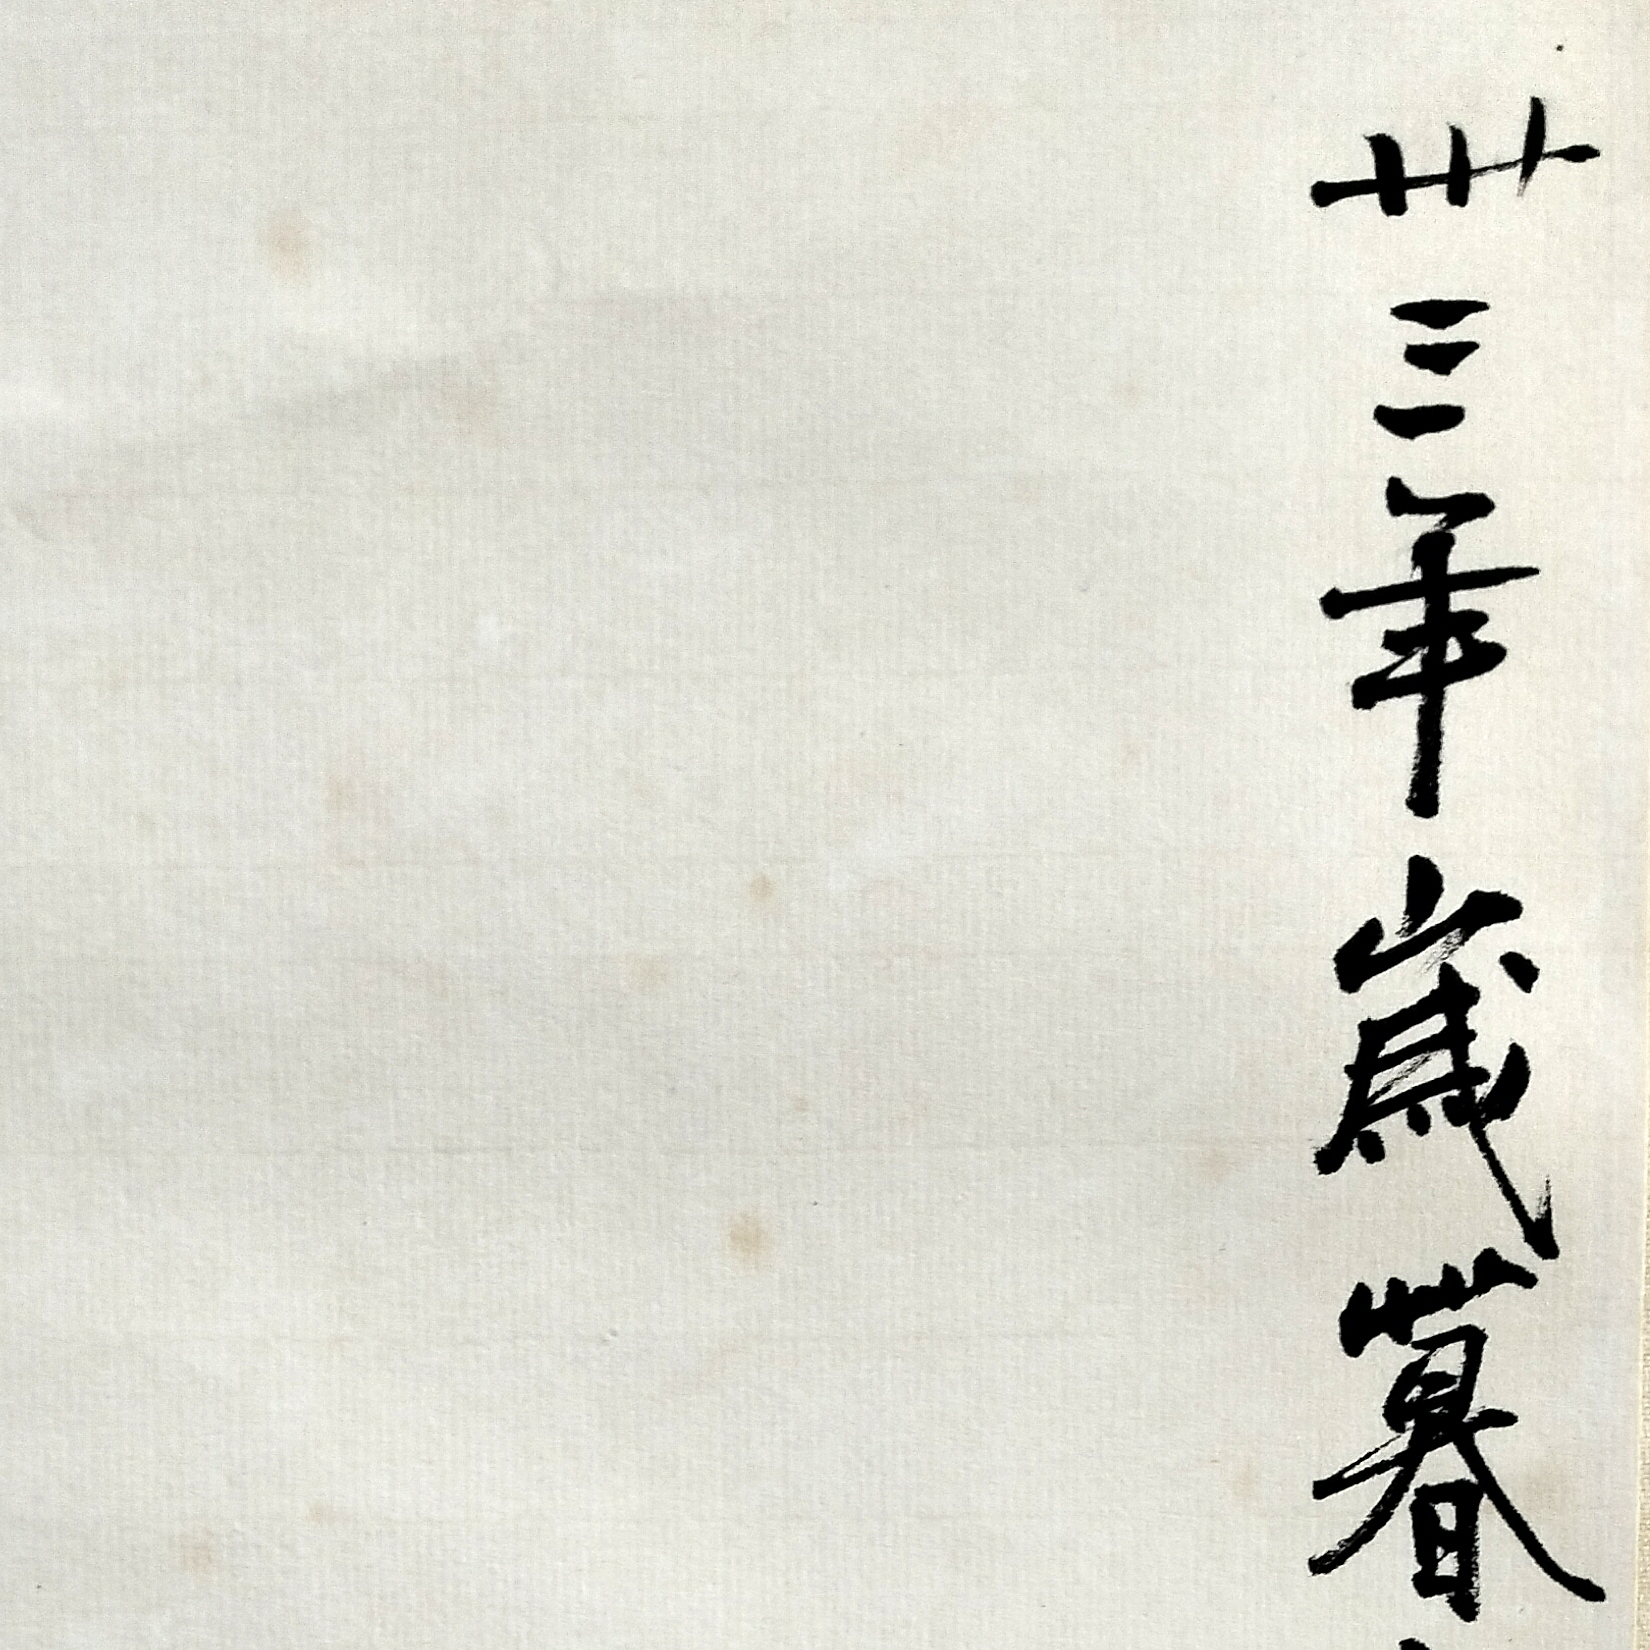 卅三年歲暮